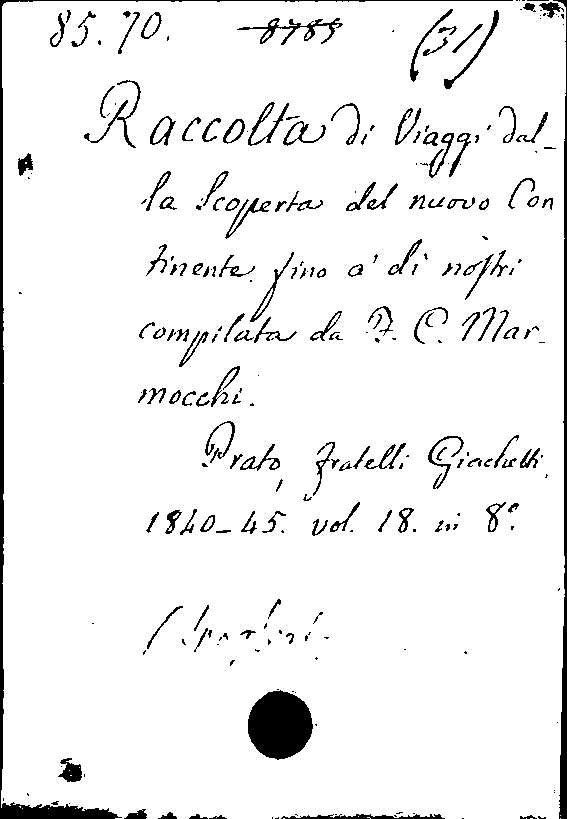 85.70. 8789 (31)
Raccolta di Viaggi dal-
la Scoperta del nuovo Con
tinente fino a' dì nostri
compilata da F. C. Mar-
mocchi.
Prato, fratelli Giachetti,
1840-45. vol. 18. in 8º.